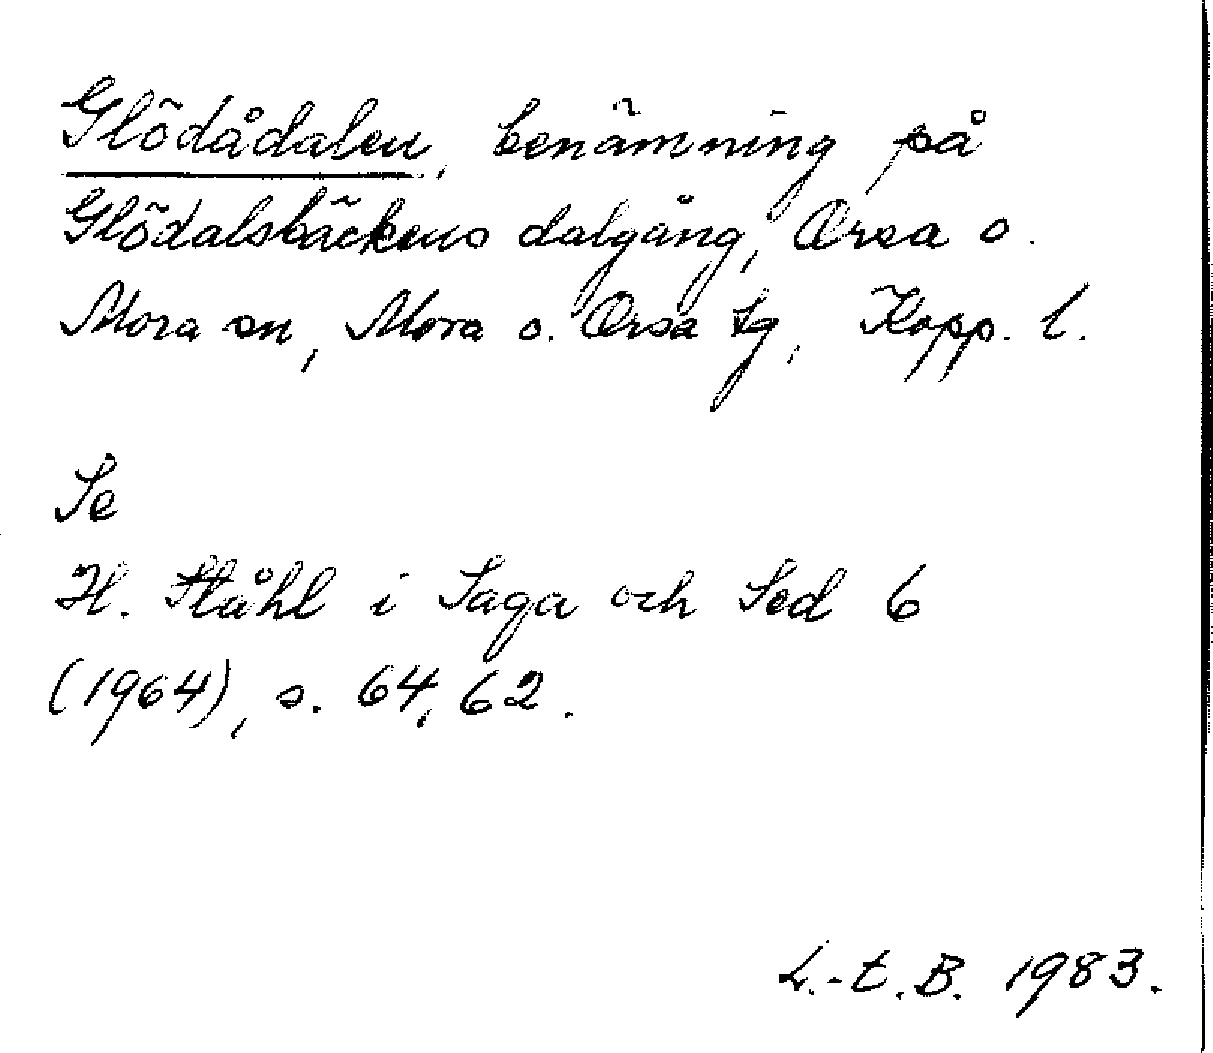 Glödådalen, benämning på
Glödalsbäckens dalgång, Orsa o.
Mora sn, Mora o. Orsa tg, Kopp. l.
Se
H. Ståhl i Saga och Sed 6
(1964), s. 64, 62.
L.-E.B. 1983.